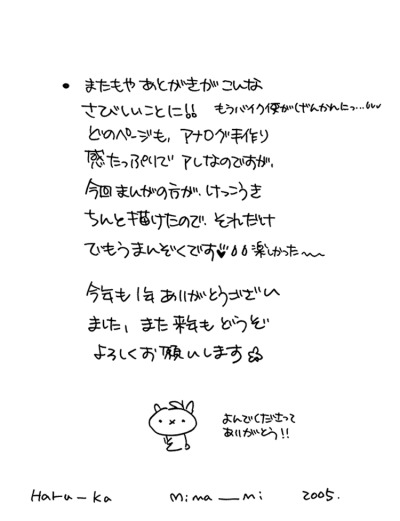 • またもや あとがきが こんな
さびしいことに!! もうバイク便が(げんかんにっ…
どのページも、アナログ手作り
感たっぷりで アレなのですが、
今回まんがの方が、けっこうき
ちんと描けたので、それだけ
でもうまんぞくです♥ 楽しかった〜
今年も1年 ありがとうござい
ました。また来年も どうぞ
よろしくお願いします
よんでくださって
ありがとう!!
Haru-ka Mina_mi 2005.